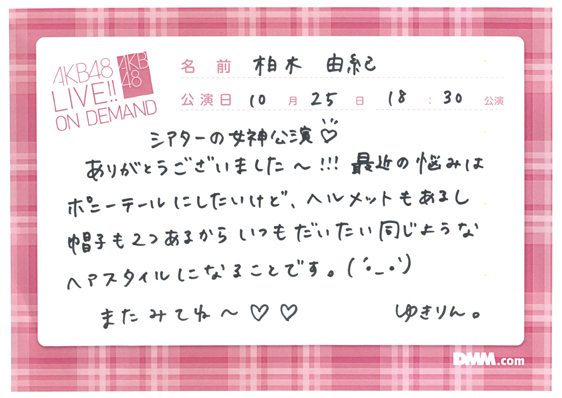 AKB48
LIVE!!
ON DEMAND
AKB
48
名前 柏木 由紀
公演日 10月25日 18:30公演
シアターの女神公演♡
ありがとうございました〜!!! 最近の悩みは
ポニーテールにしたいけど、ヘルメットもあるし
帽子も2つあるからいつもだいたい同じような
ヘアスタイルになることです。(´•_•`)
またみてね〜♡♡ ゆきりん。
DMM.com